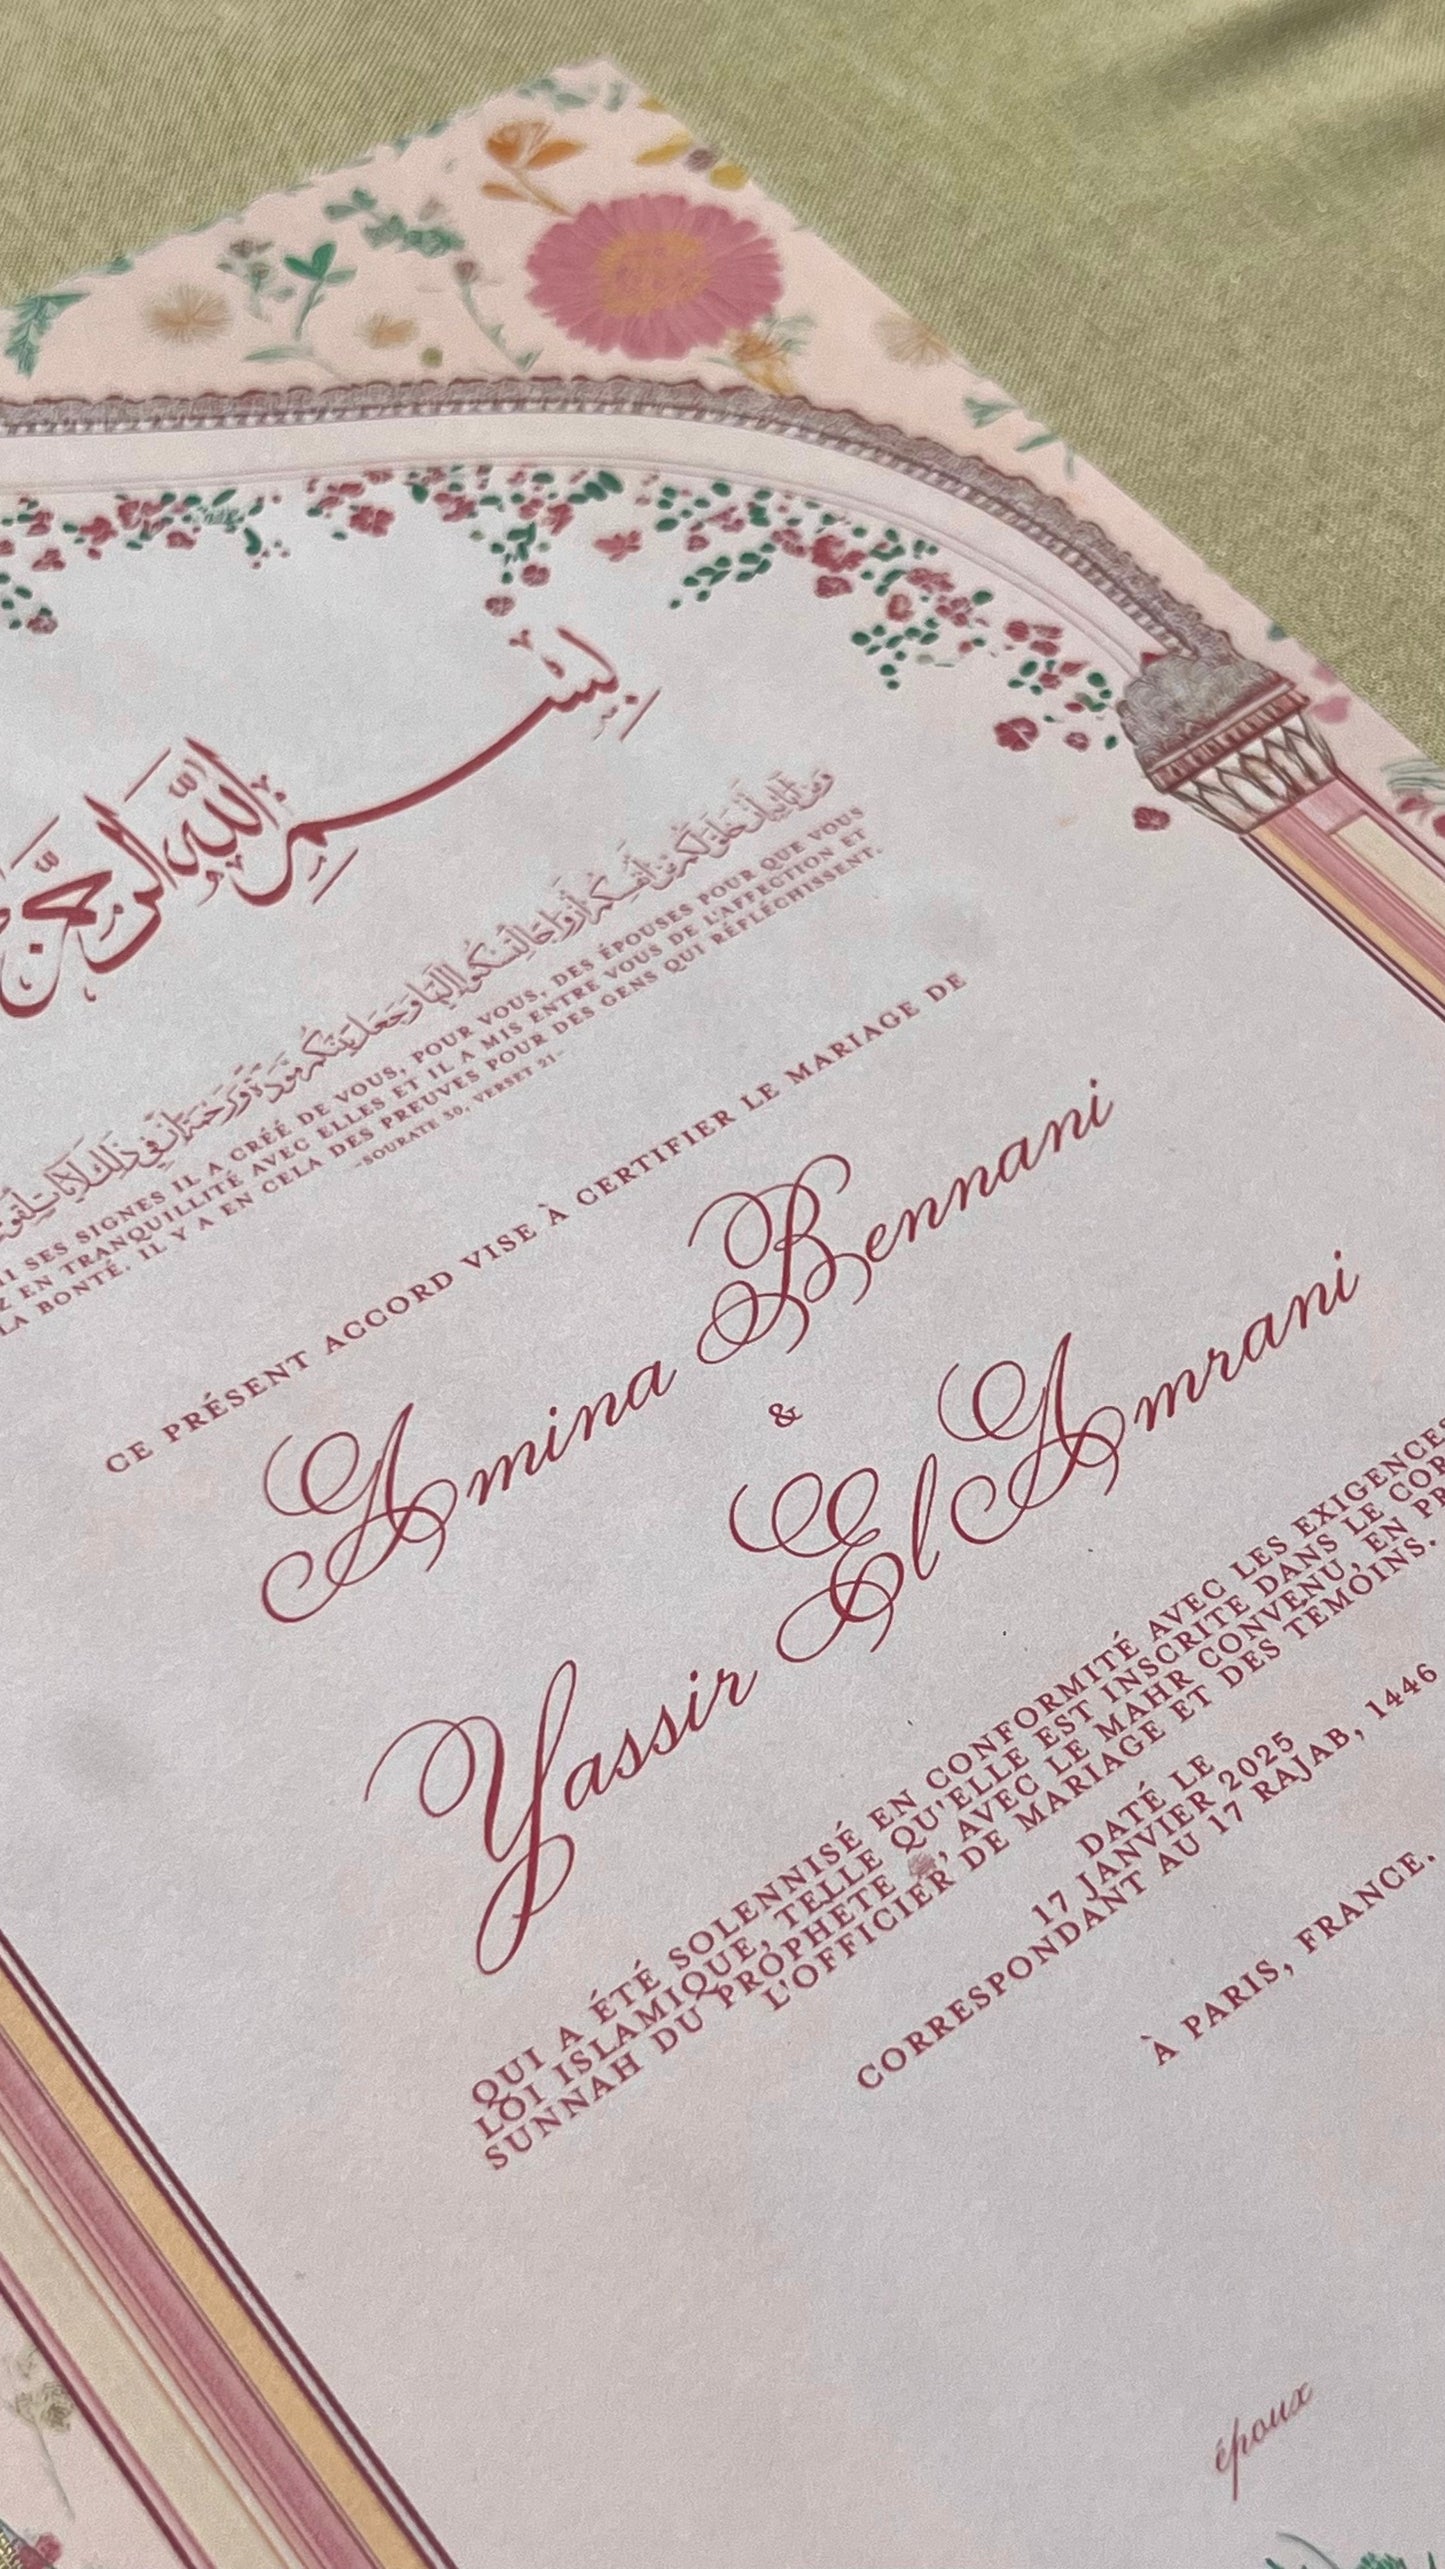 بِسْمِ اللَّهِ الرَّحْمَٰنِ
وَمِنْ آيَاتِهِ أَنْ خَلَقَ لَكُم مِّنْ أَنفُسِكُمْ أَزْوَاجًا لِّتَسْكُنُوا إِلَيْهَا وَجَعَلَ بَيْنَكُم مَّوَدَّةً وَرَحْمَةً إِنَّ فِي ذَٰلِكَ لَآيَاتٍ
SES SIGNES IL A CRÉÉ DE VOUS, POUR VOUS, DES ÉPOUSES POUR QUE VOUS
EN TRANQUILLITÉ AVEC ELLES ET IL A MIS ENTRE VOUS DE L'AFFECTION ET
LA BONTÉ. IL Y A EN CELA DES PREUVES POUR DES GENS QUI RÉFLÉCHISSENT.
-SOURATE 30, VERSET 21-
CE PRÉSENT ACCORD VISE À CERTIFIER LE MARIAGE DE
Amina Bennani
&
Yassir El Amrani
QUI A ÉTÉ SOLENNISÉ EN CONFORMITÉ AVEC LES EXIGENCES
LOI ISLAMIQUE, TELLE QU'ELLE EST INSCRITE DANS LE
SUNNAH DU PROPHÈTE , AVEC LE MAHR CONVENU, EN
L'OFFICIER DE MARIAGE ET DES TÉMOINS.
DATÉ LE
17 JANVIER 2025
CORRESPONDANT AU 17 RAJAB, 1446
À PARIS, FRANCE.
époux